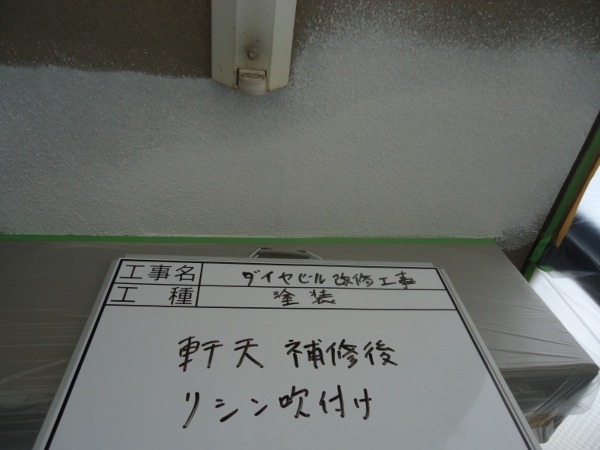 工事名 ダイヤビル改修工事
工種 塗装
軒天 補修後
リシン吹付け